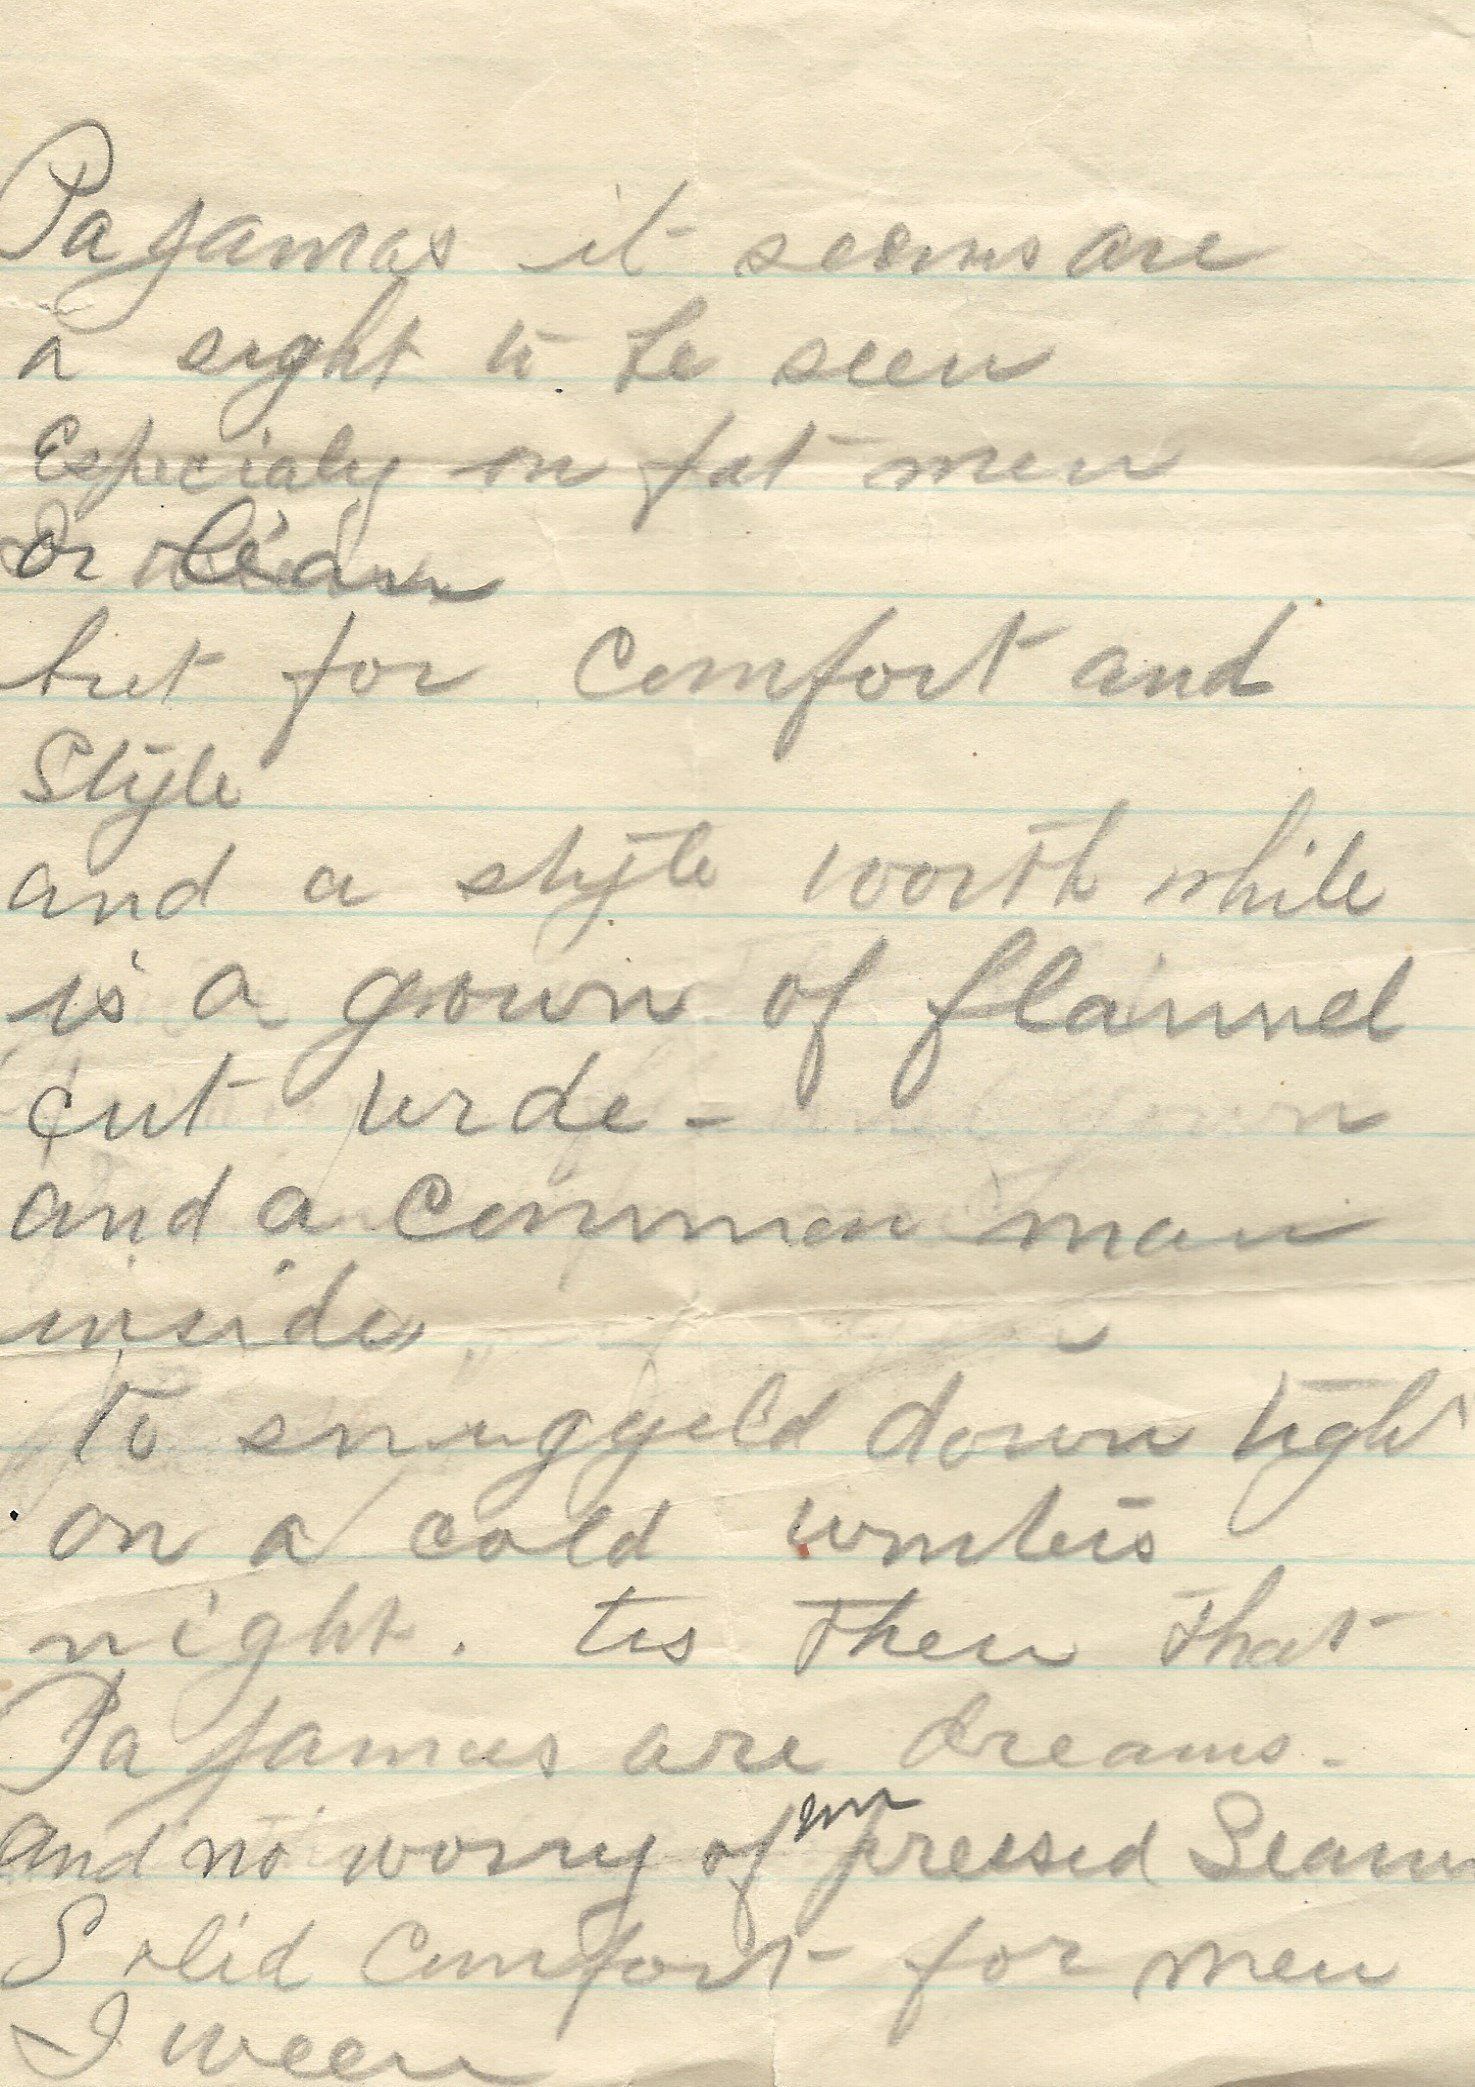 Pajamas it seems are
a sight to be seen
Especialy on fat men
Or lean
but for Comfort and
Style
and a style worth while
is a gown of flannel
cut wide -
and a common man
inside,
to snuggeld down tight
on a cold winters
night. tis then that
Pajamas are dreams.
and no worry of un pressed Seams
Solid Comfort for men
I ween